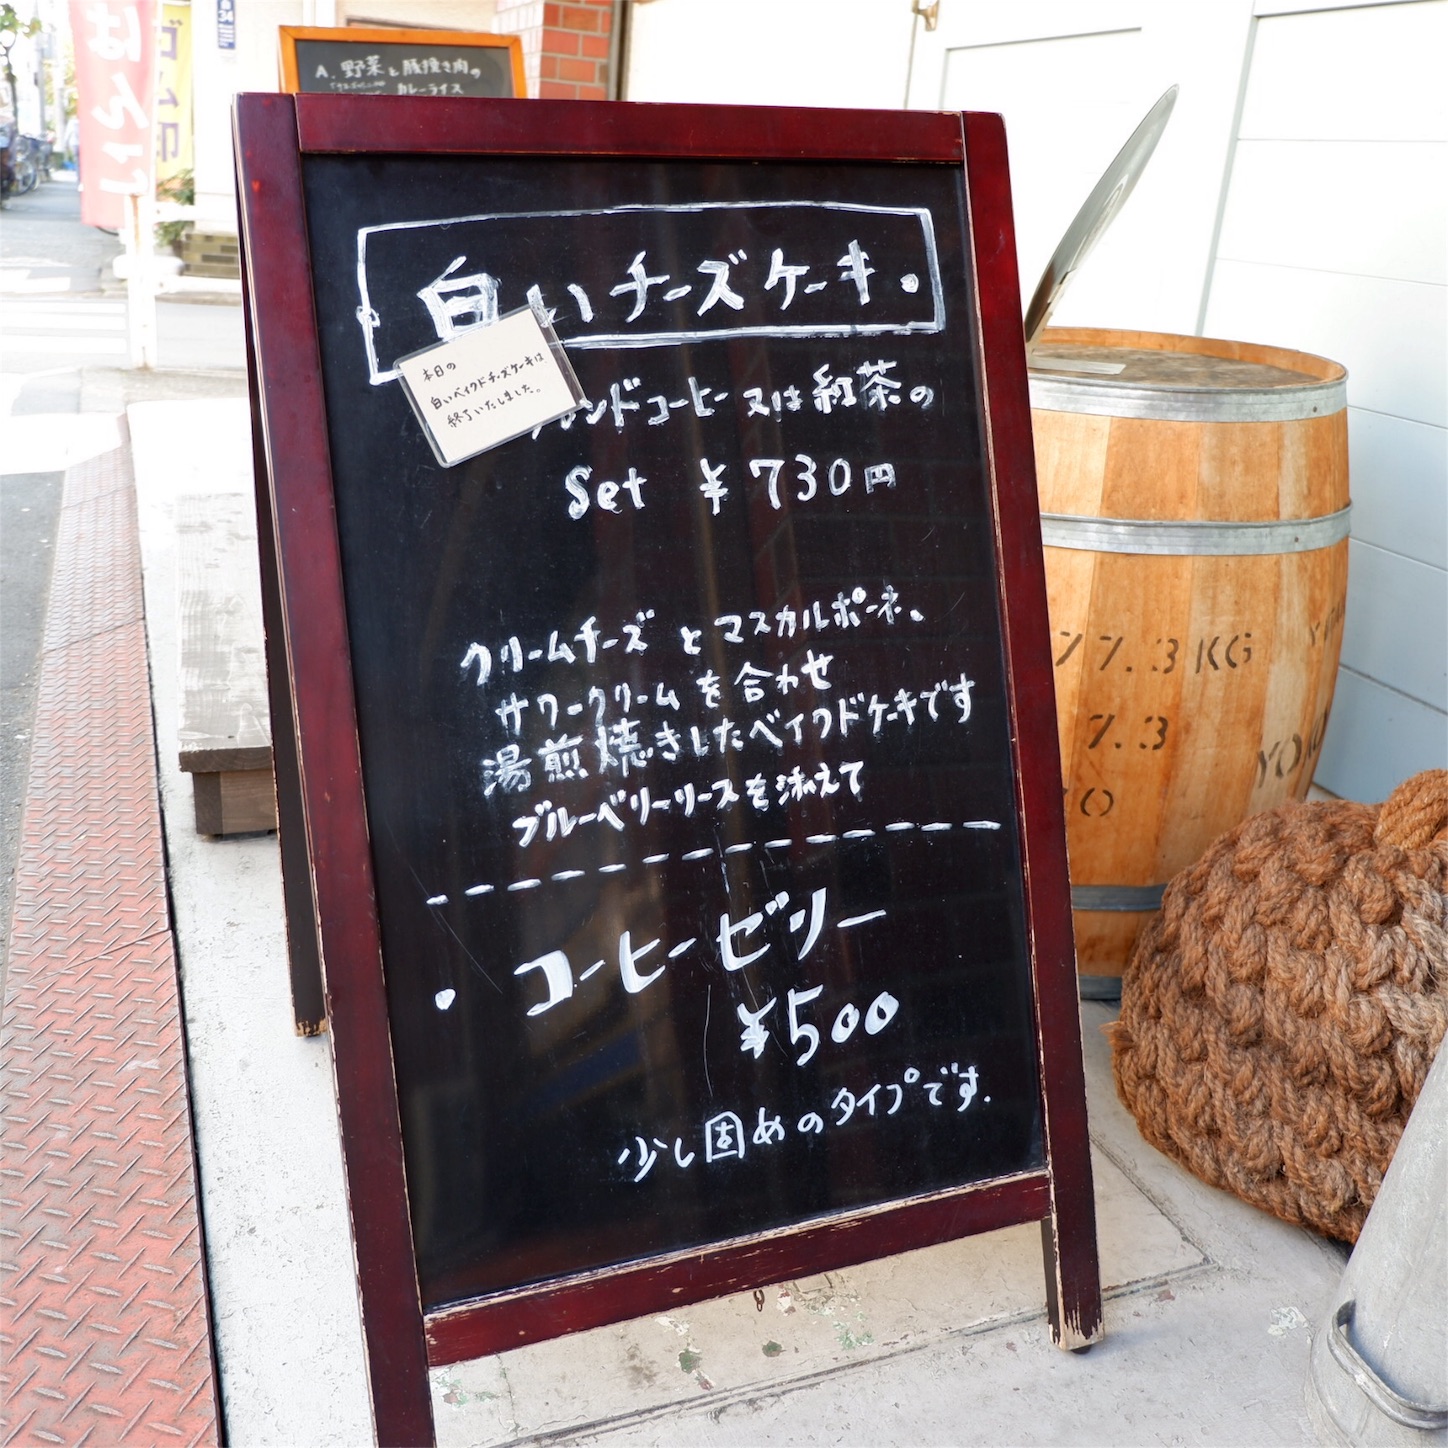 A. 野菜と豚挽き肉の
カレーライス
はんこ
ゴム印
34
白いチーズケーキ。
本日の
白いベイクドチーズケーキは
終了いたしました。
ンドコーヒー 又は紅茶の
Set ¥730円
クリームチーズとマスカルポーネ、
サワークリームを合わせ
湯煎焼きしたベイクドケーキです
ブルーベリーソースを添えて
・コーヒーゼリー
¥500
少し固めのタイプです.
77.3KG
7.3